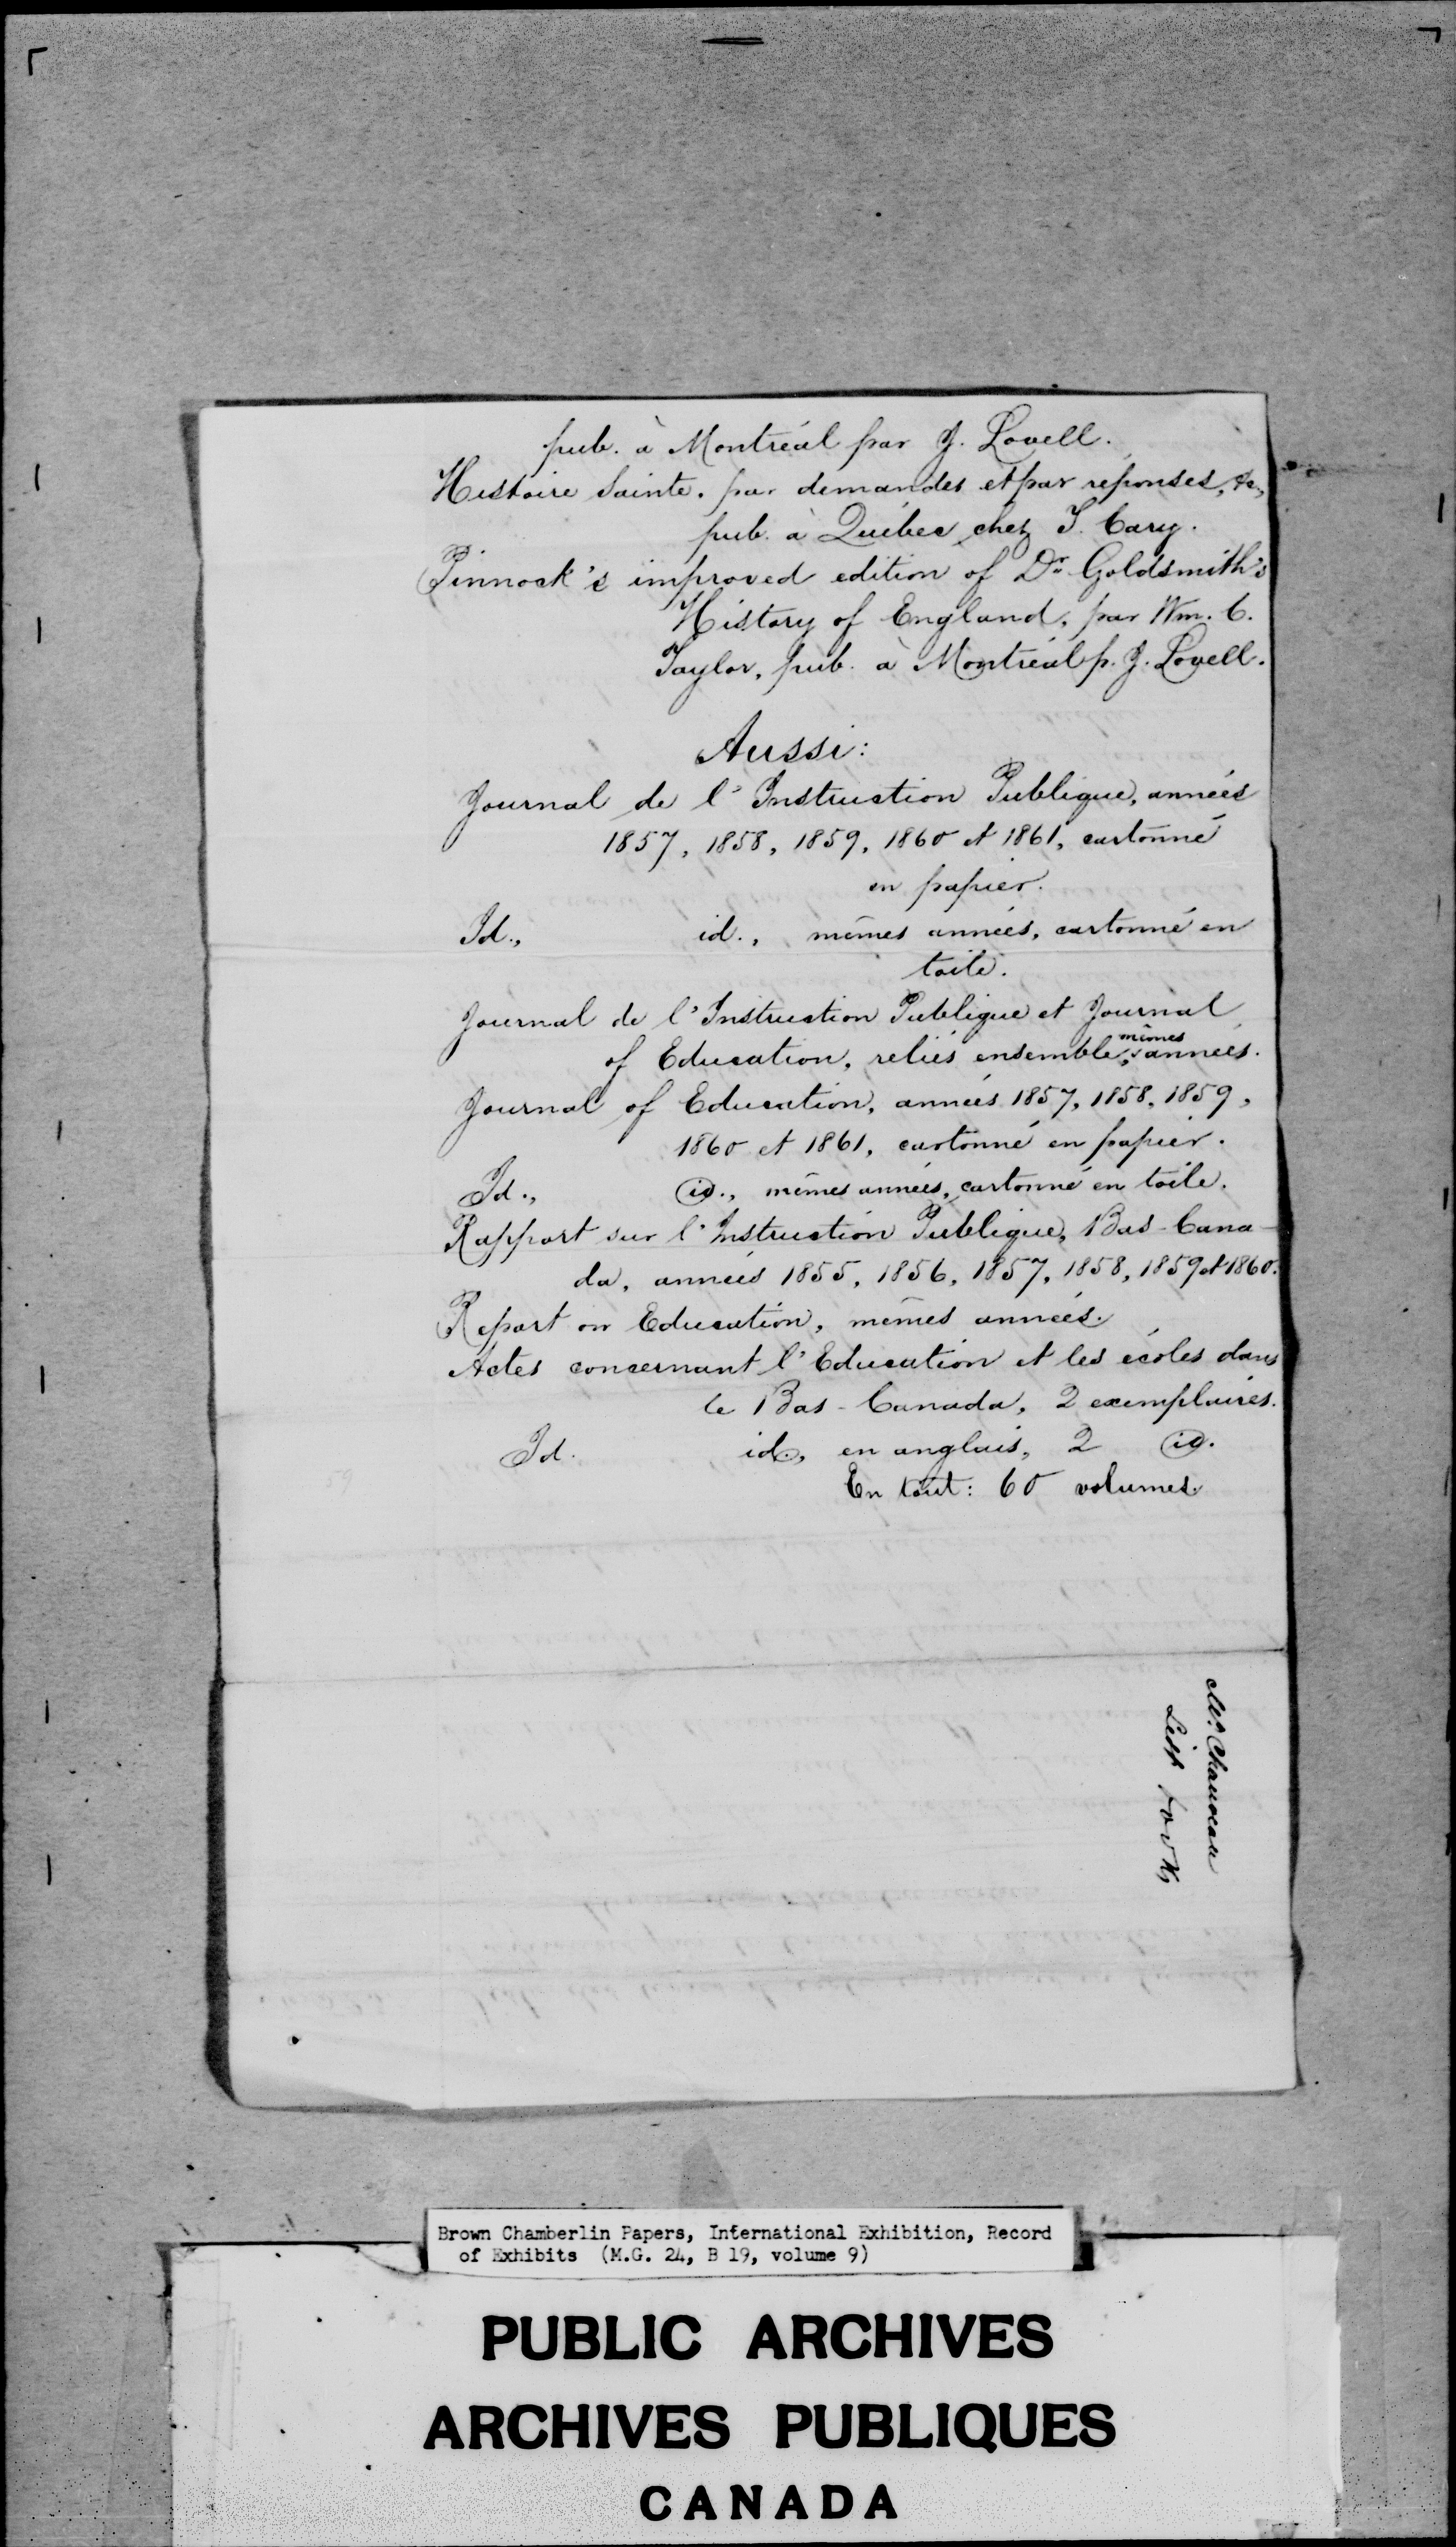 pub. à Montréal par J. Lovell.
Histoire Sainte, par demandes et par réponses, &c,
pub. à Québec chez T. Cary.
Pinnock's improved edition of Dr. Goldsmith's
History of England, par Wm. C.
Taylor, pub. à Montréal p. J. Lovell.
Aussi:
Journal de l'Instruction Publique, années
1857, 1858, 1859, 1860 et 1861, cartonné
en papier.
Id., id., mêmes années, cartonné en
toile.
Journal de l'Instruction Publique et Journal
of Education, reliés ensemble, mêmes années.
Journal of Education, années 1857, 1858, 1859,
1860 et 1861, cartonné en papier.
Id., id., mêmes années, cartonné en toile.
Rapport sur l'Instruction Publique, Bas-Cana-
da, années 1855, 1856, 1857, 1858, 1859 et 1860.
Report on Education, mêmes années.
Actes concernant l'Education et les écoles dans
le Bas-Canada, 2 exemplaires.
Id. id., en anglais, 2 id.
En tout: 60 volumes.
59
Mr. Chauveau
List
Brown Chamberlin Papers, International Exhibition, Record
of Exhibits (M.G. 24, B 19, volume 9)
PUBLIC ARCHIVES
ARCHIVES PUBLIQUES
CANADA